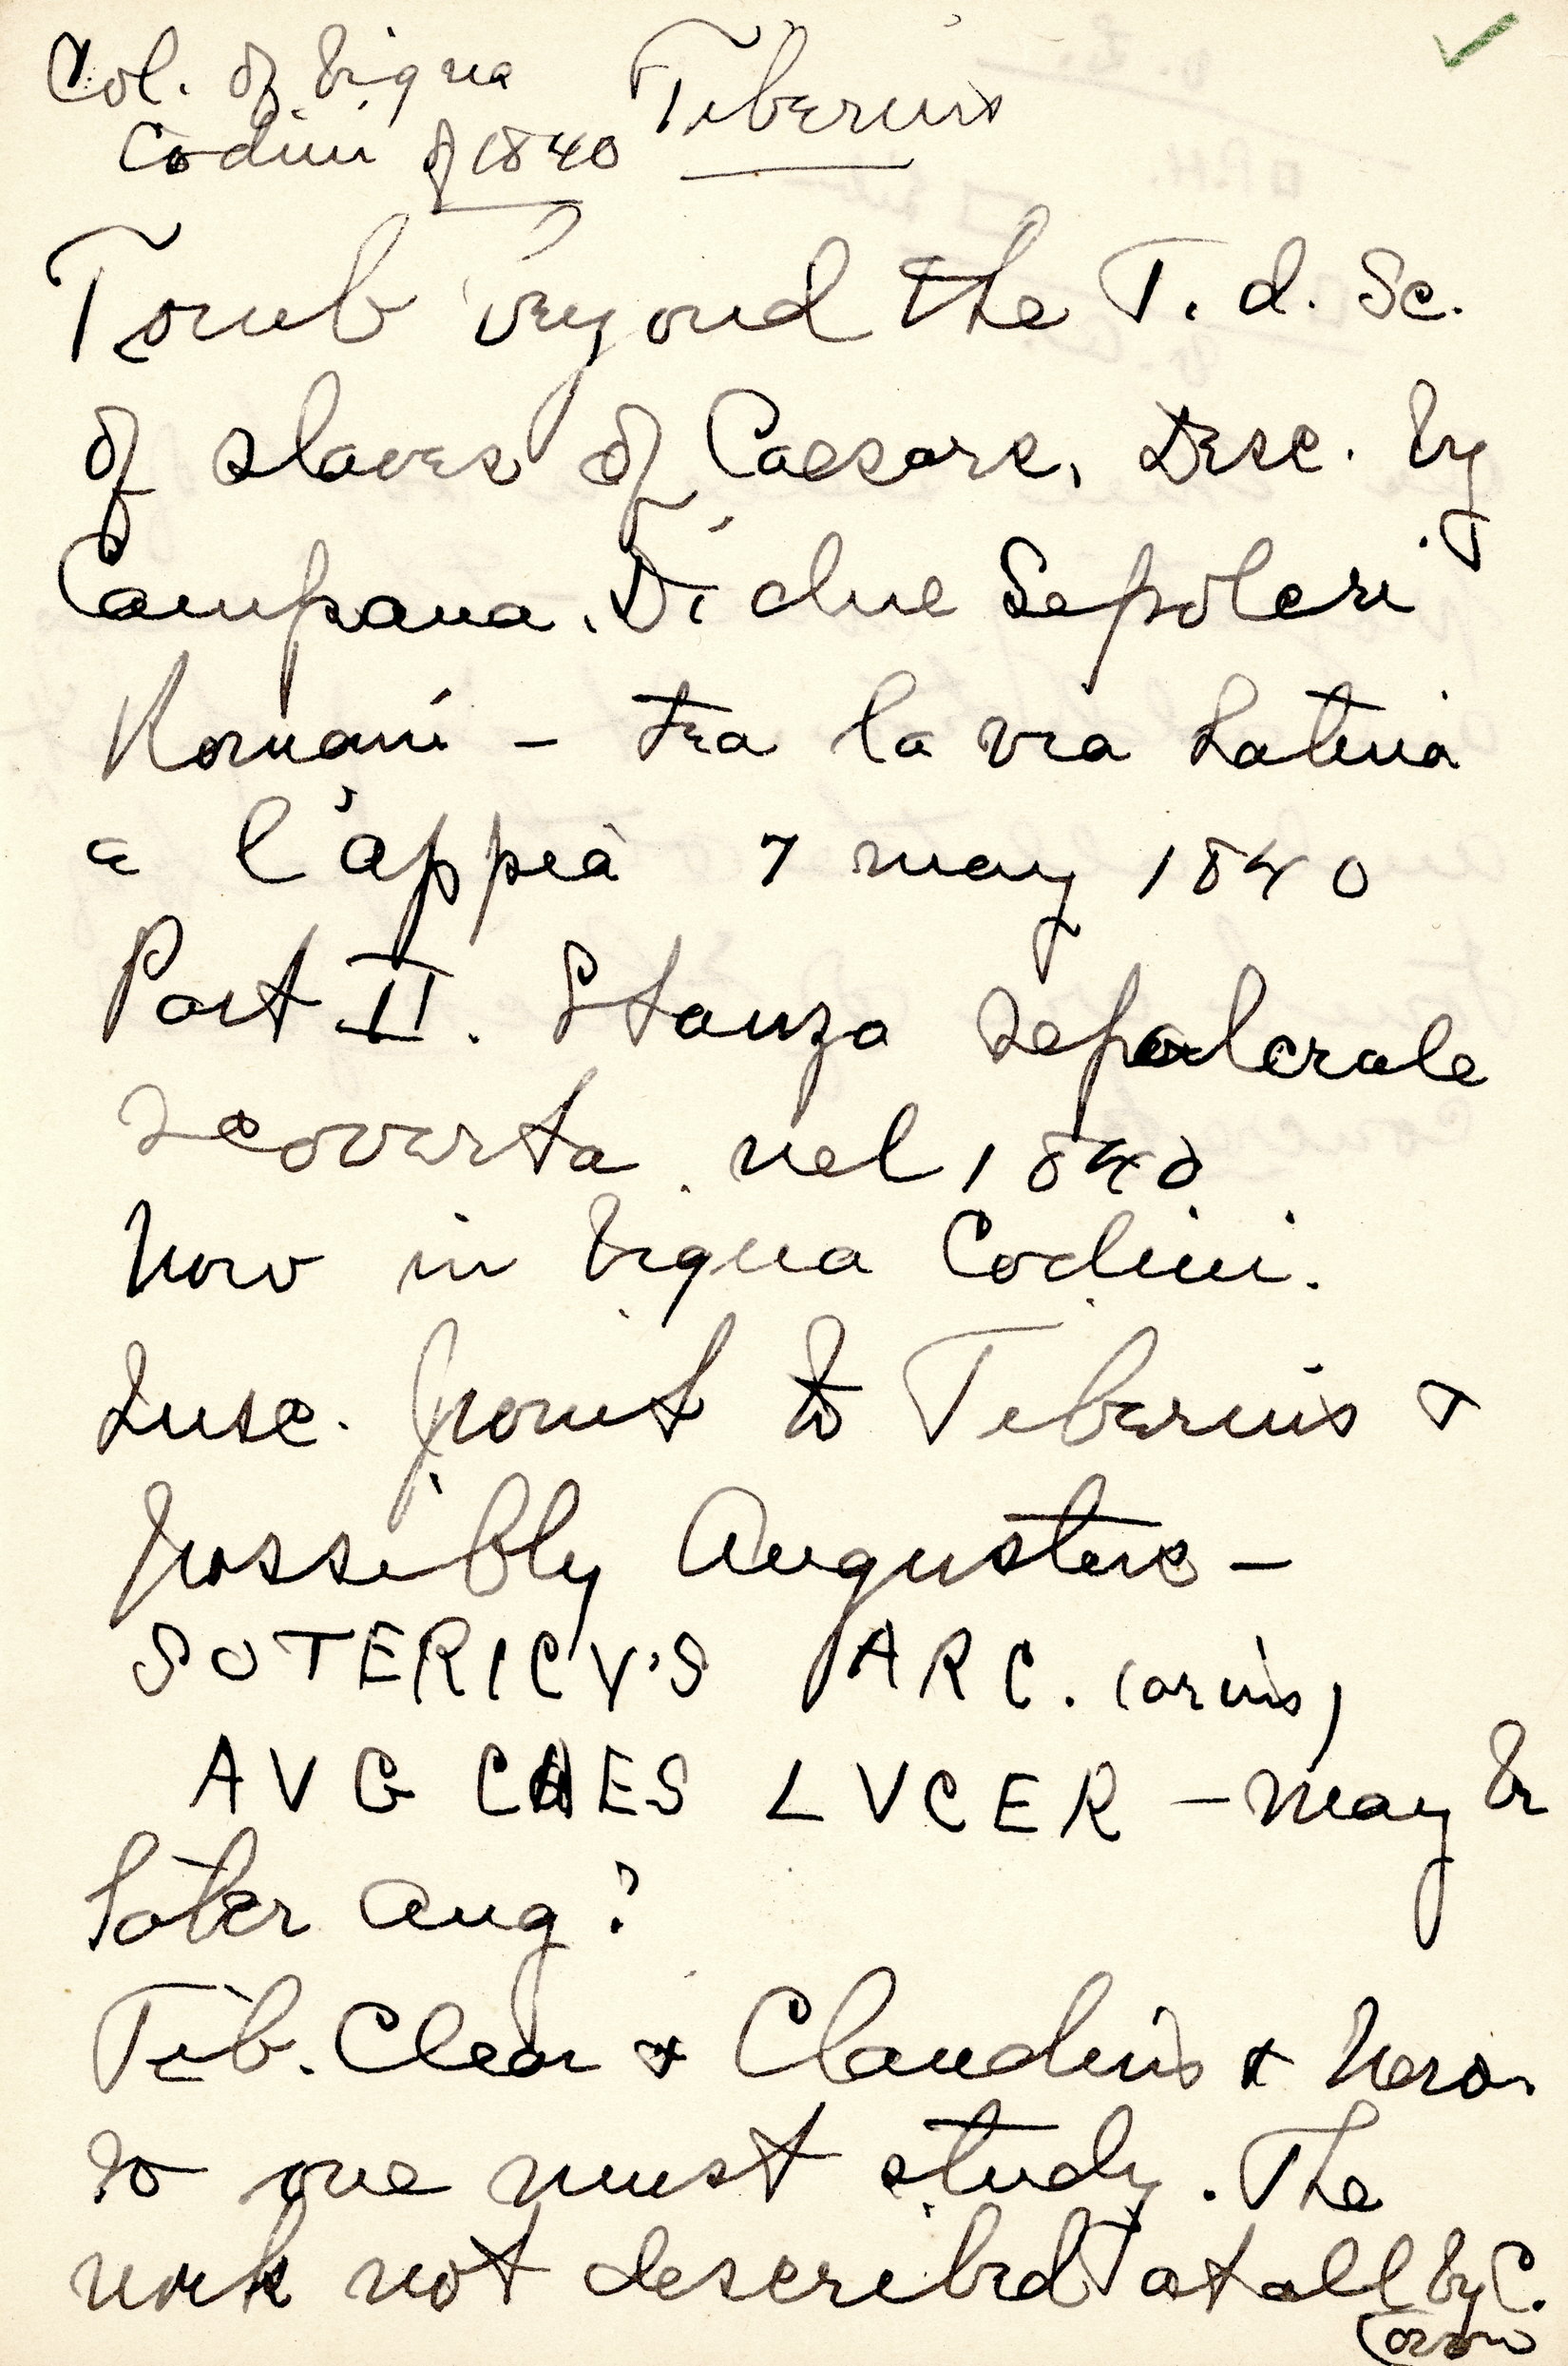 Col. of Vigna Tiberius
Codini of 1840
Tomb beyond the T. d. Sc.
of slaves of Caesars. Desc. by
Campana. Di due Sepolcri
Romani – tra la via Latina
e l'appia 7 may 1840
Part II. Stanza sepolcrale
scoverta nel 1840
Now in Vigna Codini.
Insc. point to Tiberius &
possibly Augustus –
SOTERICVS ARC. (arius)
AVG CAES LVCER – May be
later Aug?
Tib. Clear & Claudius & Nero.
so one must study. The
work not described at all by C.